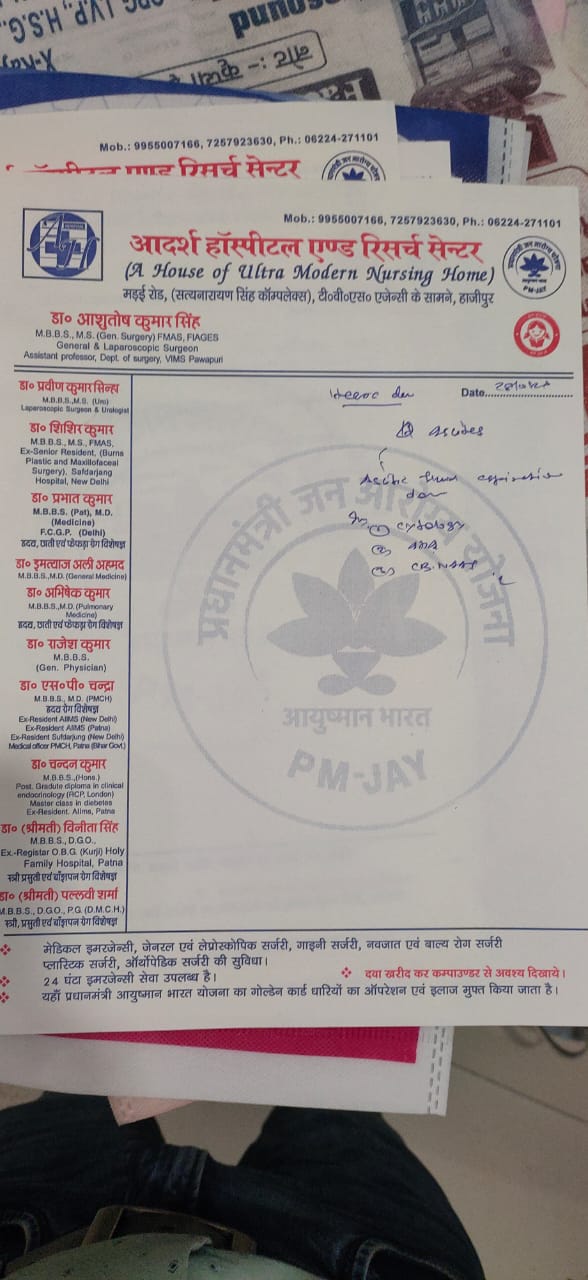 punos
Mob.: 9955007166, 7257923630, Ph.: 06224-271101
एण्ड रिसर्च सेन्टर
Mob.: 9955007166, 7257923630, Ph.: 06224-271101
आदर्श हॉस्पीटल एण्ड रिसर्च सेन्टर
(A House of Ultra Modern Nursing Home)
मड़ई रोड, (सत्यनारायण सिंह कॉम्पलेक्स), टी०वी०एस० एजेन्सी के सामने, हाजीपुर
PM-JAY
डा० आशुतोष कुमार सिंह
M.B.B.S., M.S. (Gen. Surgery) FMAS, FIAGES
General & Laparoscopic Surgeon
Assistant professor, Dept. of surgery, VIMS Pawapuri
Date
डा० प्रवीण कुमार सिन्हा
M.B.B.S.,M.S. (Uro)
Laparoscopic Surgeon & Urologist
डा० शिशिर कुमार
M.B.B.S., M.S., FMAS,
Ex-Senior Resident, (Burns
Plastic and Maxillofaceal
Surgery), Safdarjang
Hospital, New Delhi
डा० प्रभात कुमार
M.B.B.S. (Pat), M.D.
(Medicine)
F.C.G.P. (Delhi)
हृदय, छाती एवं फेफड़ा रोग विशेषज्ञ
डा० इमत्याज अली अहमद
M.B.B.S.,M.D. (General Medicine)
डा० अभिषेक कुमार
M.B.B.S.,M.D. (Pulmonary
Medicine)
हृदय, छाती एवं फेफड़ा रोग विशेषज्ञ
डा० राजेश कुमार
M.B.B.S.
(Gen. Physician)
डा० एस०पी० चन्द्रा
M.B.B.S., M.D. (PMCH)
हृदय रोग विशेषज्ञ
Ex-Resident AIIMS (New Delhi)
Ex-Resident AIIMS (Patna)
Ex-Resident Sufdarjung (New Delhi)
Medical officer PMCH, Patna (Bihar Govt.)
डा० चन्दन कुमार
M.B.B.S.,(Hons.)
Post. Gradute diploma in clinical
endocrinology (RCP, London)
Master class in diebetes
Ex-Resident. Aiims, Patna
डा० (श्रीमती) विनीता सिंह
M.B.B.S., D.G.O.,
Ex.-Registar O.B.G. (Kurji) Holy
Family Hospital, Patna
स्त्री प्रसुती एवं बाँझपन रोग विशेषज्ञ
डा० (श्रीमती) पल्लवी शर्मा
M.B.B.S., D.G.O., P.G. (D.M.C.H.)
स्त्री, प्रसुती एवं बाँझपन रोग विशेषज्ञ
Ascites
Ascitic
cytology
ADA
CBNAAT
प्रधानमंत्री जन आरोग्य योजना
आयुष्मान भारत
PM-JAY
मेडिकल इमरजेन्सी, जेनरल एवं लेप्रोस्कोपिक सर्जरी, गाइनी सर्जरी, नवजात एवं बाल्य रोग सर्जरी
प्लास्टिक सर्जरी, ऑर्थोपेडिक सर्जरी की सुविधा।
24 घंटा इमरजेन्सी सेवा उपलब्ध है। दवा खरीद कर कम्पाउण्डर से अवश्य दिखाये।
यहाँ प्रधानमंत्री आयुष्मान भारत योजना का गोल्डेन कार्ड धारियों का ऑपरेशन एवं इलाज मुफ्त किया जाता है।